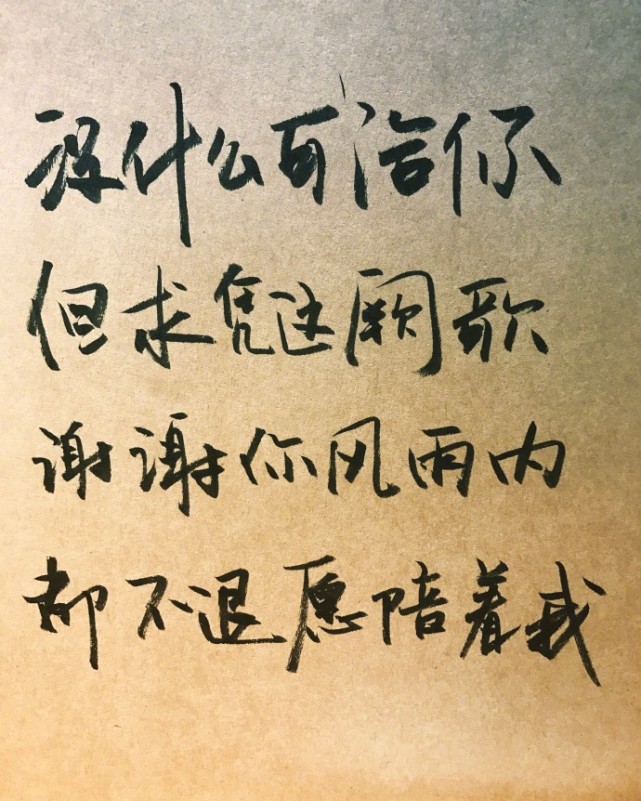 没什么可给你
但求凭这阙歌
谢谢你风雨内
都不退愿陪着我